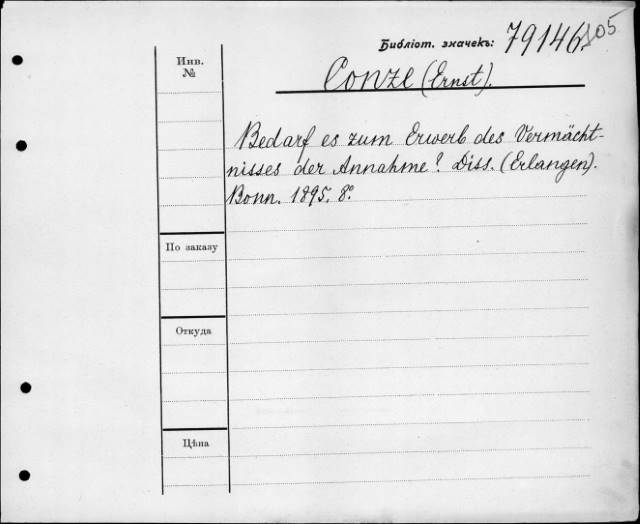 Библіот. значекъ: 79146
Инв.
№
Conze (Ernst).
Bedarf es zum Erwerb des Vermächt-
nisses der Annahme? Diss. (Erlangen).
Bonn. 1895. 8°
По заказу
Откуда
Цѣна